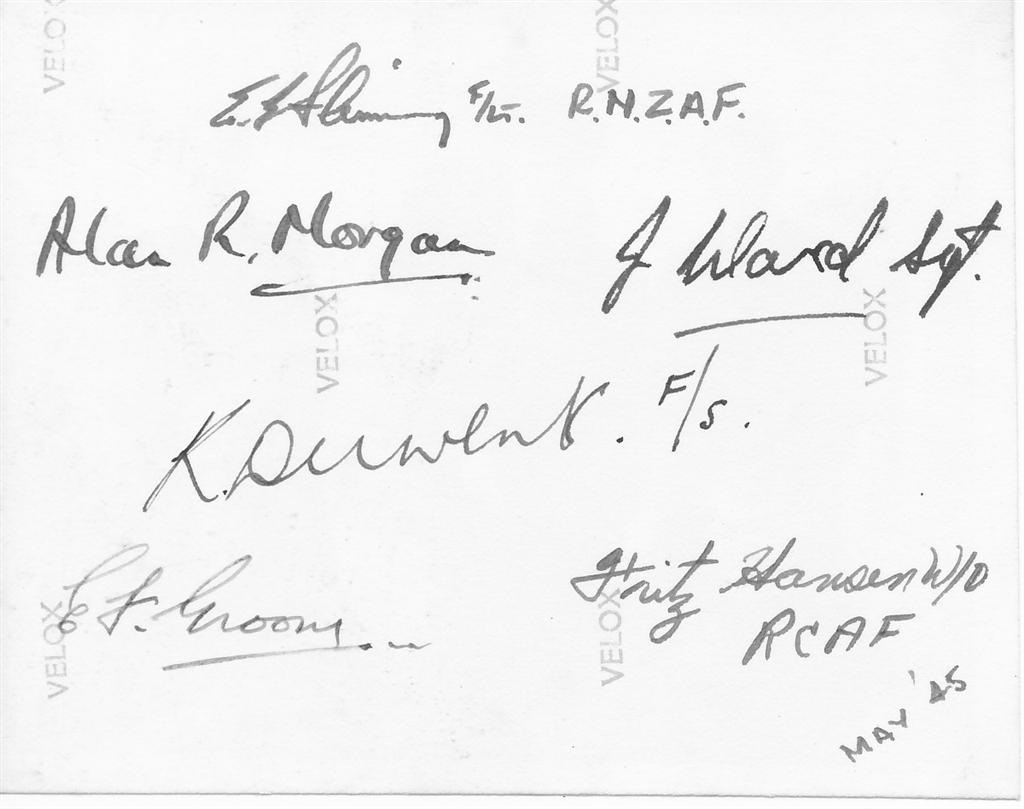 VELOX VELOX
F/Lt. R.N.Z.A.F.
Alan R. Morgan J Ward Sgt.
VELOX VELOX
K. Derwent. F/S.
E F. Groom
Fritz Hansen W/O
RCAF
VELOX VELOX
MAY '45